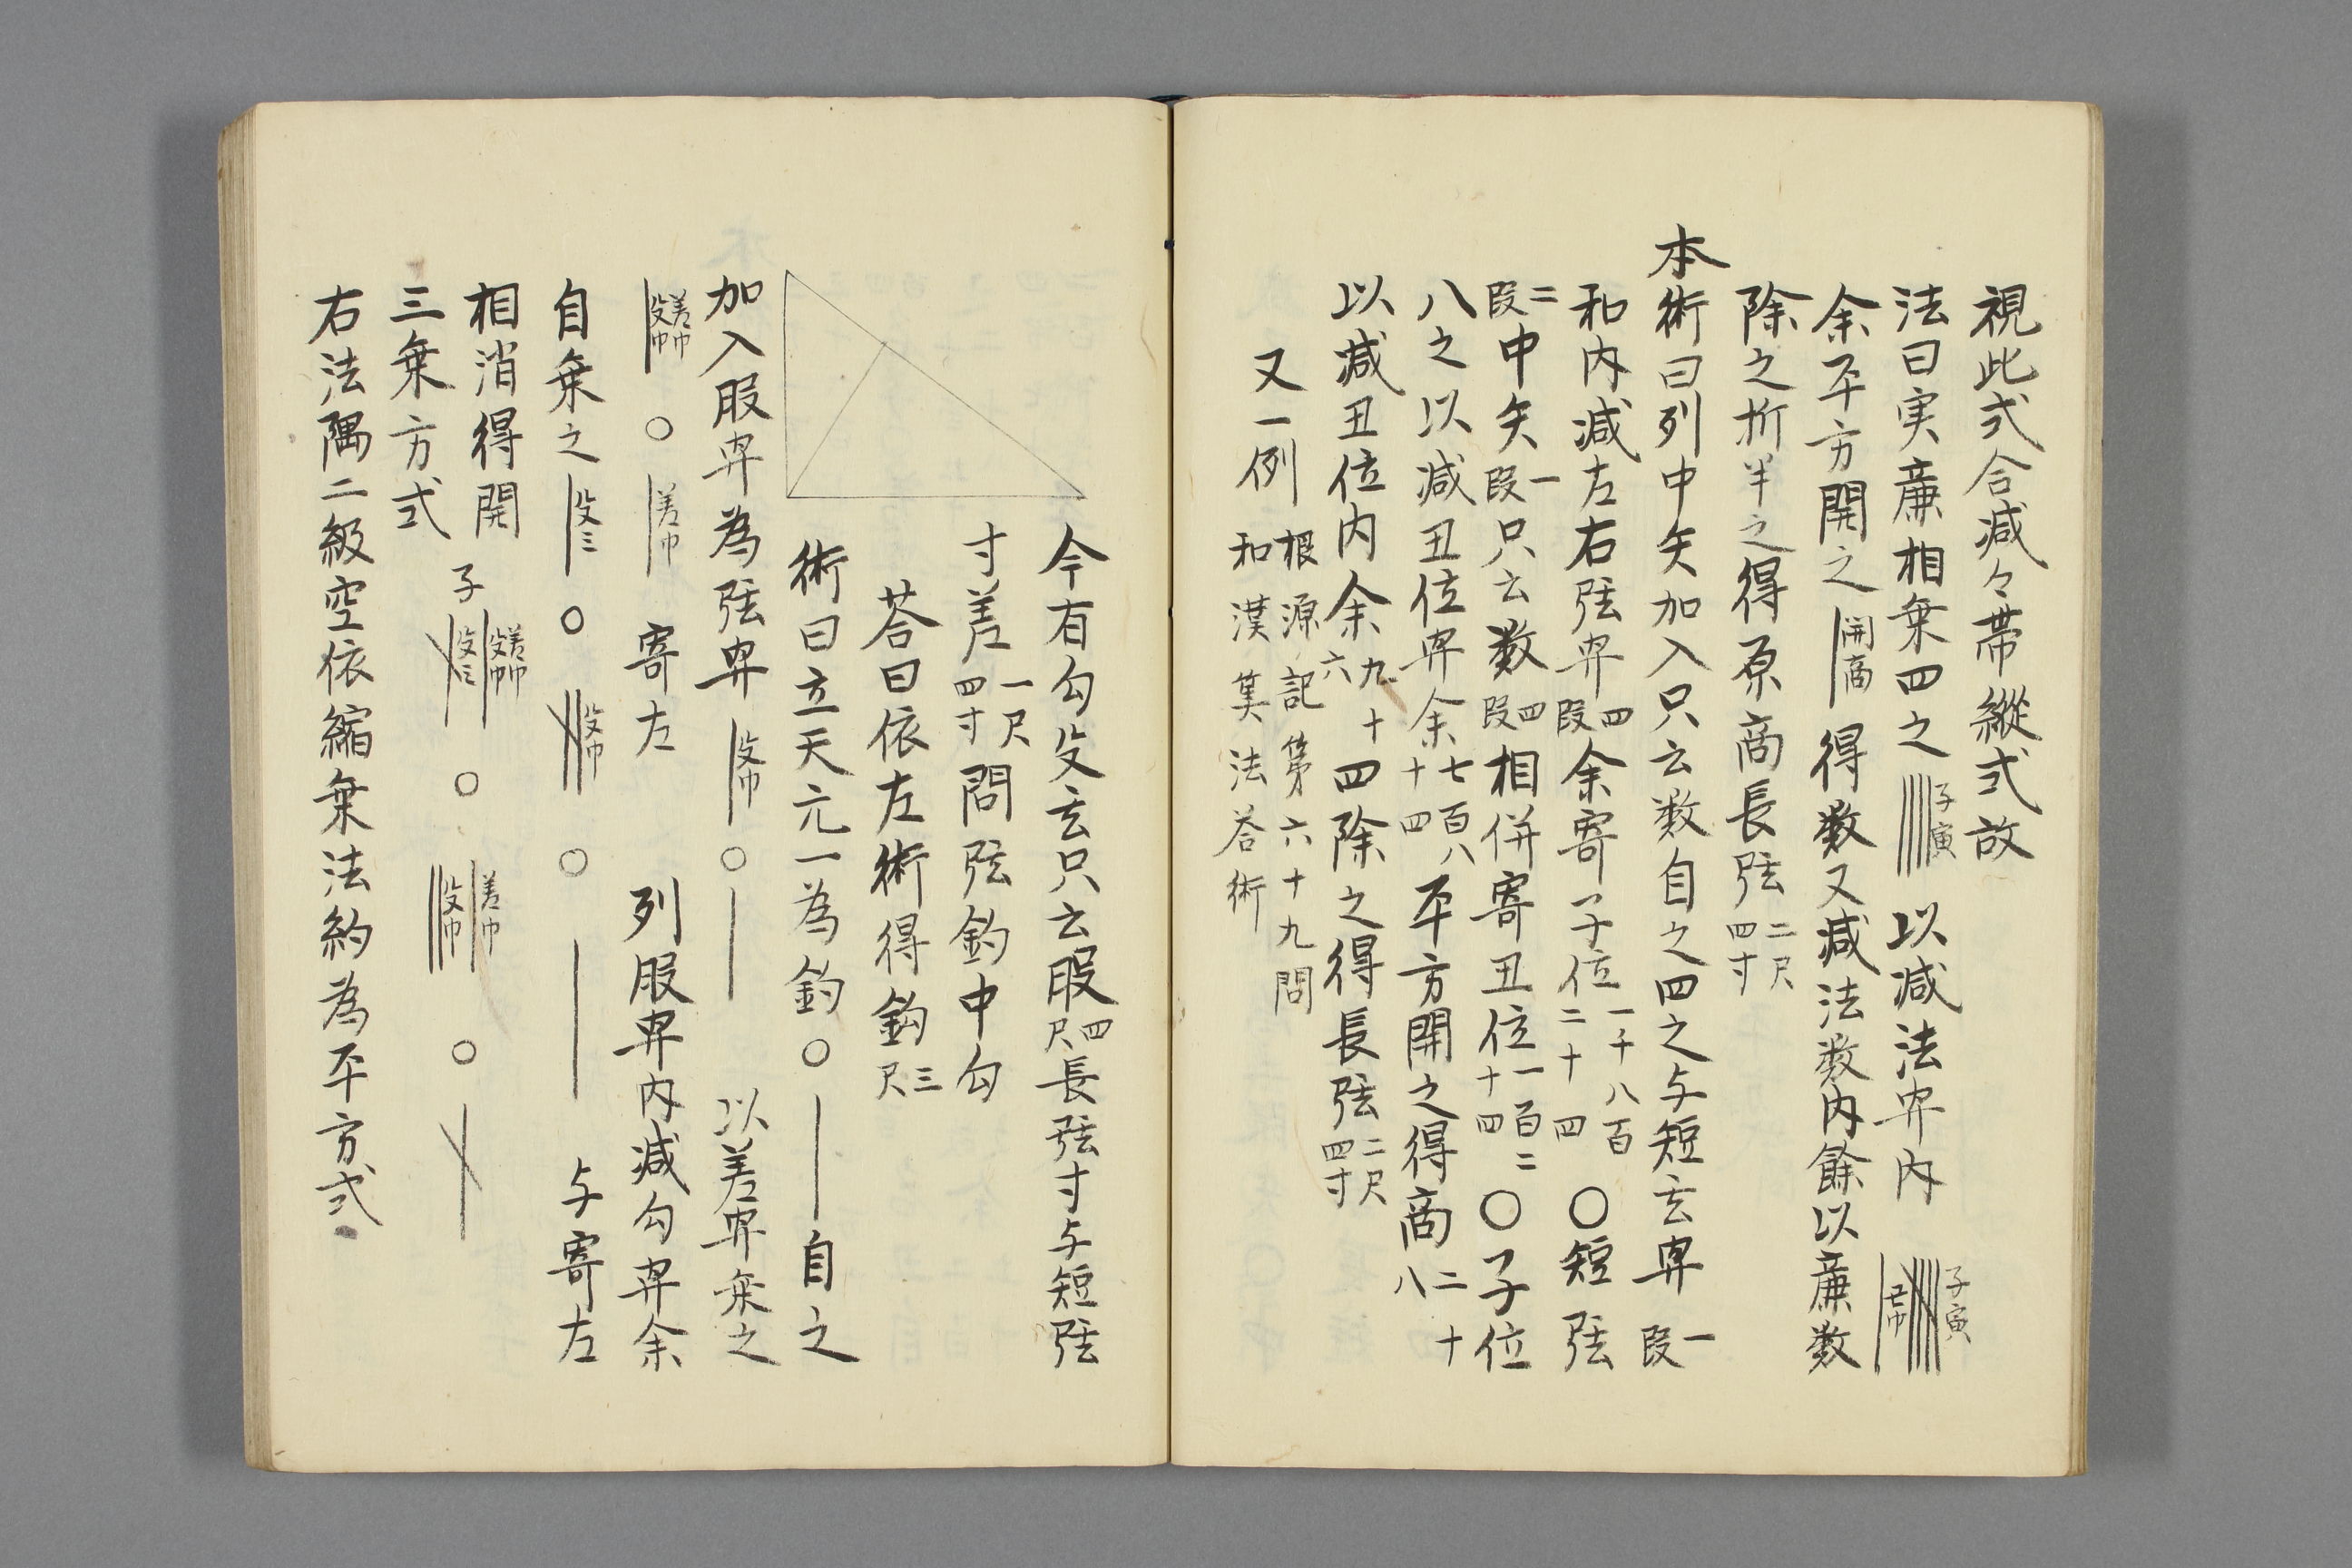 視此式合減々帯縱式故
法曰実廉相乗四之子寅以減法巾内子寅丑巾
余平方開之開商得数又減法数内餘以廉数
除之折半之得原商長弦二尺四寸
本術曰列中矢加入只云数自之四之与短玄巾一段
和内減左右弦巾四段余寄子位一千八百二十四〇短弦
二段中矢一段只云数四段相併寄丑位一百二十四〇子位
八之以減丑位巾余七百八十四平方開之得商二十八
以減丑位内余九十六四除之得長弦二尺四寸
又一例根源記第六十九問和漢算法荅術
今有勾殳玄只云股四尺長弦寸与短弦
寸差一尺四寸問弦釣中勾
荅曰依左術得釣三尺
術曰立天元一為釣〇自之
加入股巾為弦巾殳巾〇以差巾乗之
差巾殳巾〇差巾寄左列股巾内減勾巾余
自乗之殳三〇殳巾〇与寄左
相消得開
三乗方式子差巾殳巾殳三〇差巾殳巾〇
右法隅二級空依縮乗法約為平方式